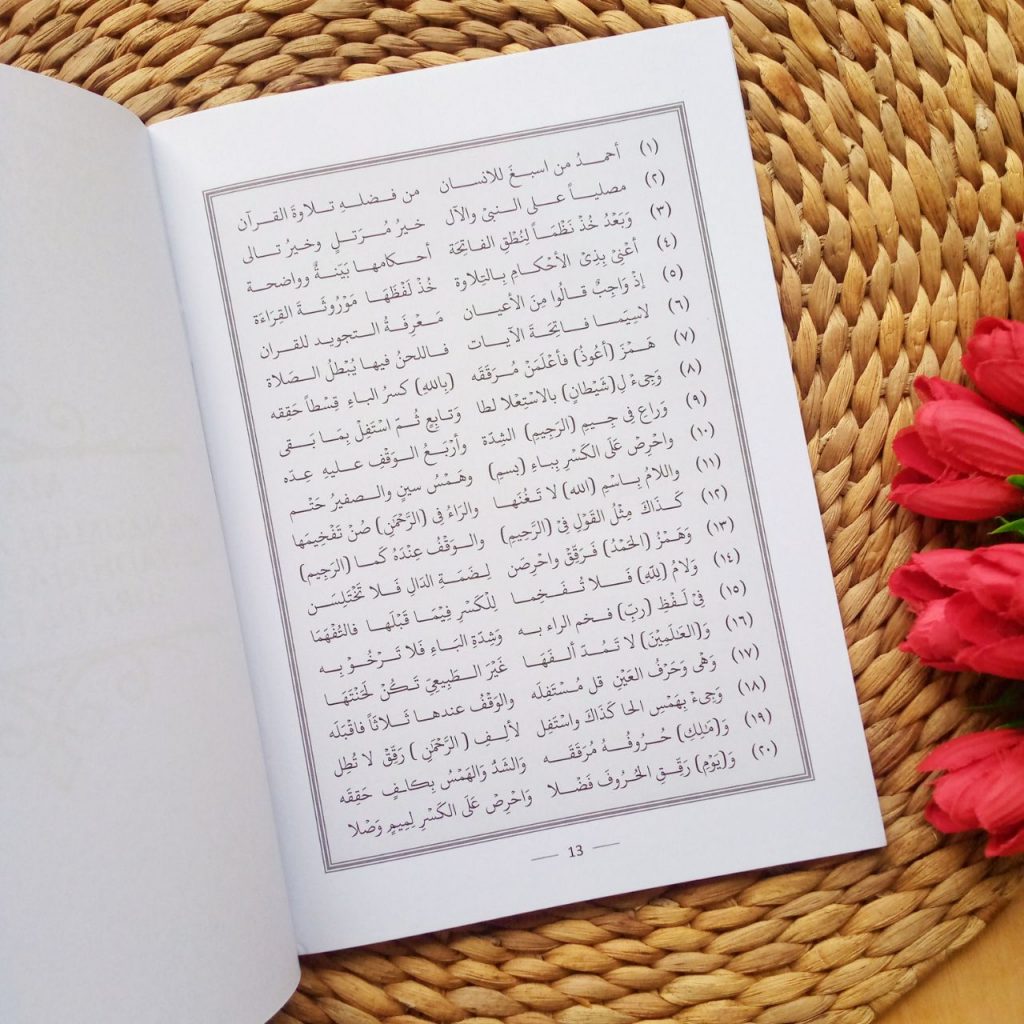 (١) أحمدُ من اسبغَ للانسان من فضلهِ تلاوةَ القرآن
(٢) مصلياً على النبىْ والآل خيرُ مُرَتلٍ وخيرُ تالى
(٣) وَبَعْدُ خُذْ نَظْمَاً لِنُطْقِ الفاتِحَة أحكامها بَيّنةٌ وواضحة
(٤) أعْنِىْ بِذِىْ الأحْكامِ بالتِلاوة خُذْ لَفْظَهَا مَوْرُوثَةَ القِرَاءَة
(٥) إذْ وَاجِبٌ قالُوا مِنَ الأعيان مَعْرِفَةُ التجويد للقران
(٦) لاسِيَما فاتِحَةَ الآيات فاللحنُ فيها يُبْطلُ الصَلاة
(٧) هَمْزَ (أعُوذُ) فأعْلَمَنْ مُرَقّقَه (بِاللهِ) كسرُ الباءِ قِسْطاً حَقِقه
(٨) وَجِىءْ لِ(شَيْطانٍ) بالاسْتِعْلا لطا وَتابِعٍ ثُمّ اسْتَفِلْ بِمَا بَقى
(٩) وَراعِ فِى جِيمِ (الرَجِيمِ) الشِدّة وأرْبَعُ الوَقْفِ عليهِ عِدّه
(١٠) واحْرِصْ عَلَى الكَسْرِ بِباءِ (بسمِ) وَهَمْسُ سينٍ والصفيرُ حَتْم
(١١) واللامُ بِاسْمِ (الله) لا تَغُنّها والرَاءُ فِى (الرَّحْمٰنِ) صُنْ تَفْخِيمَها
(١٢) كَذَاكَ مِثْلُ القَوْلِ فِىْ (الرَّحِيمِ) والوَقْفُ عِنْدَهُ كَما (الرَجِيم)
(١٣) وَهَمْزُ (الحَمْدُ) فَرَقِّقْ واحْرِصَن لِضَمَةِ الدَالِ فَلا تَخْتَلِسَن
(١٤) وَلامُ (لِلّٰهِ) فَلا تُفَخِما لِلْكَسْرِ فِيْمَا قَبْلَها فالتُفْهَمَا
(١٥) فِىْ لَفْظِ (ربِّ) فخم الراء به وَشِدَةِ البَاءِ فَلا تَرْخُوْ بِه
(١٦) وَ(العٰلَمِيْنَ) لا تَمُدّ ألفَهَا غَيْرَ الطَبِيعِيّ تَكُنْ لَحَنْتَهَا
(١٧) وَهْى وَحَرْفُ العَيْنِ قل مُسْتَفِلَه والوَقْفُ عندها ثَلاثاً فاقْبَلَه
(١٨) وَجِىءْ بِهَمْسِ الحا كَذَاكَ واسْتَفِل لألِفِ (الرَّحْمٰنِ) رَقِقْ لا تُطِل
(١٩) وَ(مٰلِكِ) حُرُوفُهُ مُرَقّقَه وَالشَدُّ وَالهَمْسُ بِكافٍ حَقِقَه
(٢٠) وَ(يَوْمِ) رَقِقِ الحُرُوفَ فَضْلا وَاحْرِصْ عَلَى الكَسْرِ لِمِيمٍ وَصْلا
13